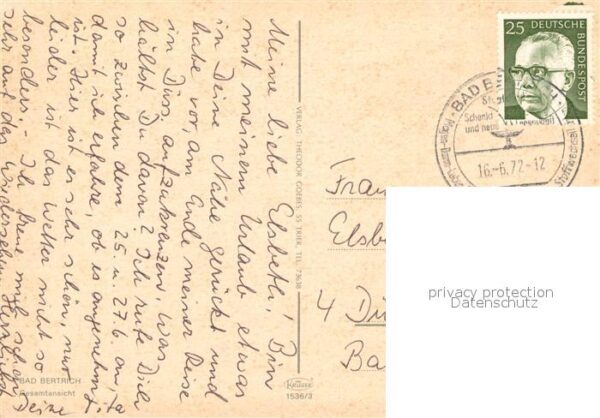 Meine liebe Elsbeth! Bin
mit meinem Urlaub etwas
in Deine Nähe gerückt und
habe vor, am Ende meiner Reise
in Düss. aufzukreuzen. Was
hältst Du davon? Ich rufe Dich
so zwischen dem 25 u. 27.6. an,
damit ich erfahre, ob es angenehm
ist. Hier ist es sehr schön, nur
leider ist das Wetter nicht so
besonders. - Ich freue mich schon
sehr auf das Wiedersehen. Herzlichst
Deine
BAD BERTRICH
Gesamtansicht
VERLAG THEODOR GOEBES, 55 TRIER, TEL. 73638
Krüger
1536/3
25 DEUTSCHE
BUNDESPOST
BAD BE
Schenkt
und neue
16.-6.72-12
Frau
Elsbe
4 Dü
Ba
privacy protection
Datenschutz